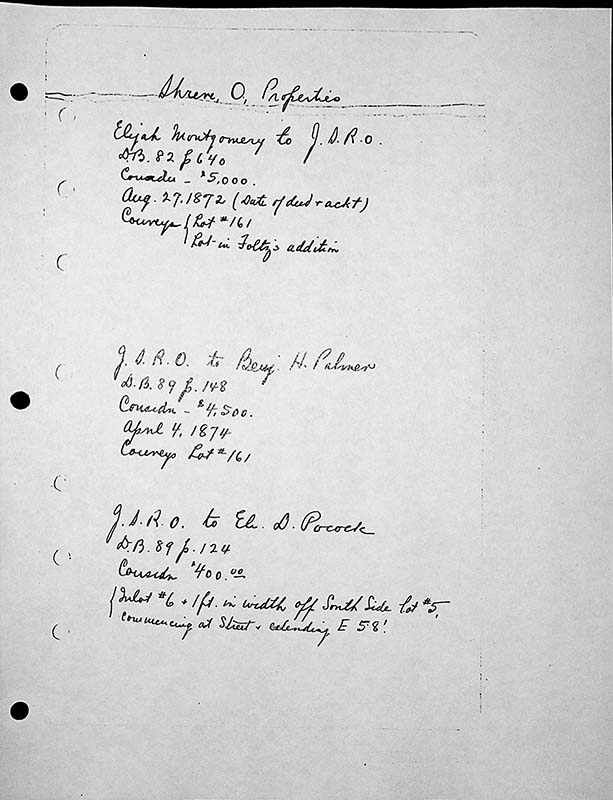 Shreve, O, Properties
Elijah Montgomery to J.D.R.O.
D.B. 82 p 640
Considn - $5,000.
Aug. 27, 1872 (Date of deed + ackt)
Conveys { Lot #161
Lot in Foltz's addition
J.D.R.O. to Benj. H. Palmer
D.B. 89 p. 148
Considn - $4,500.
April 4, 1874
Conveys Lot #161
J.D.R.O. to Eli. D. Pocock
D.B. 89 p. 124
Considn $400.00
{ Inlot #6 + 1 ft. in width off South Side lot #5,
commencing at Street + extending E 58'.